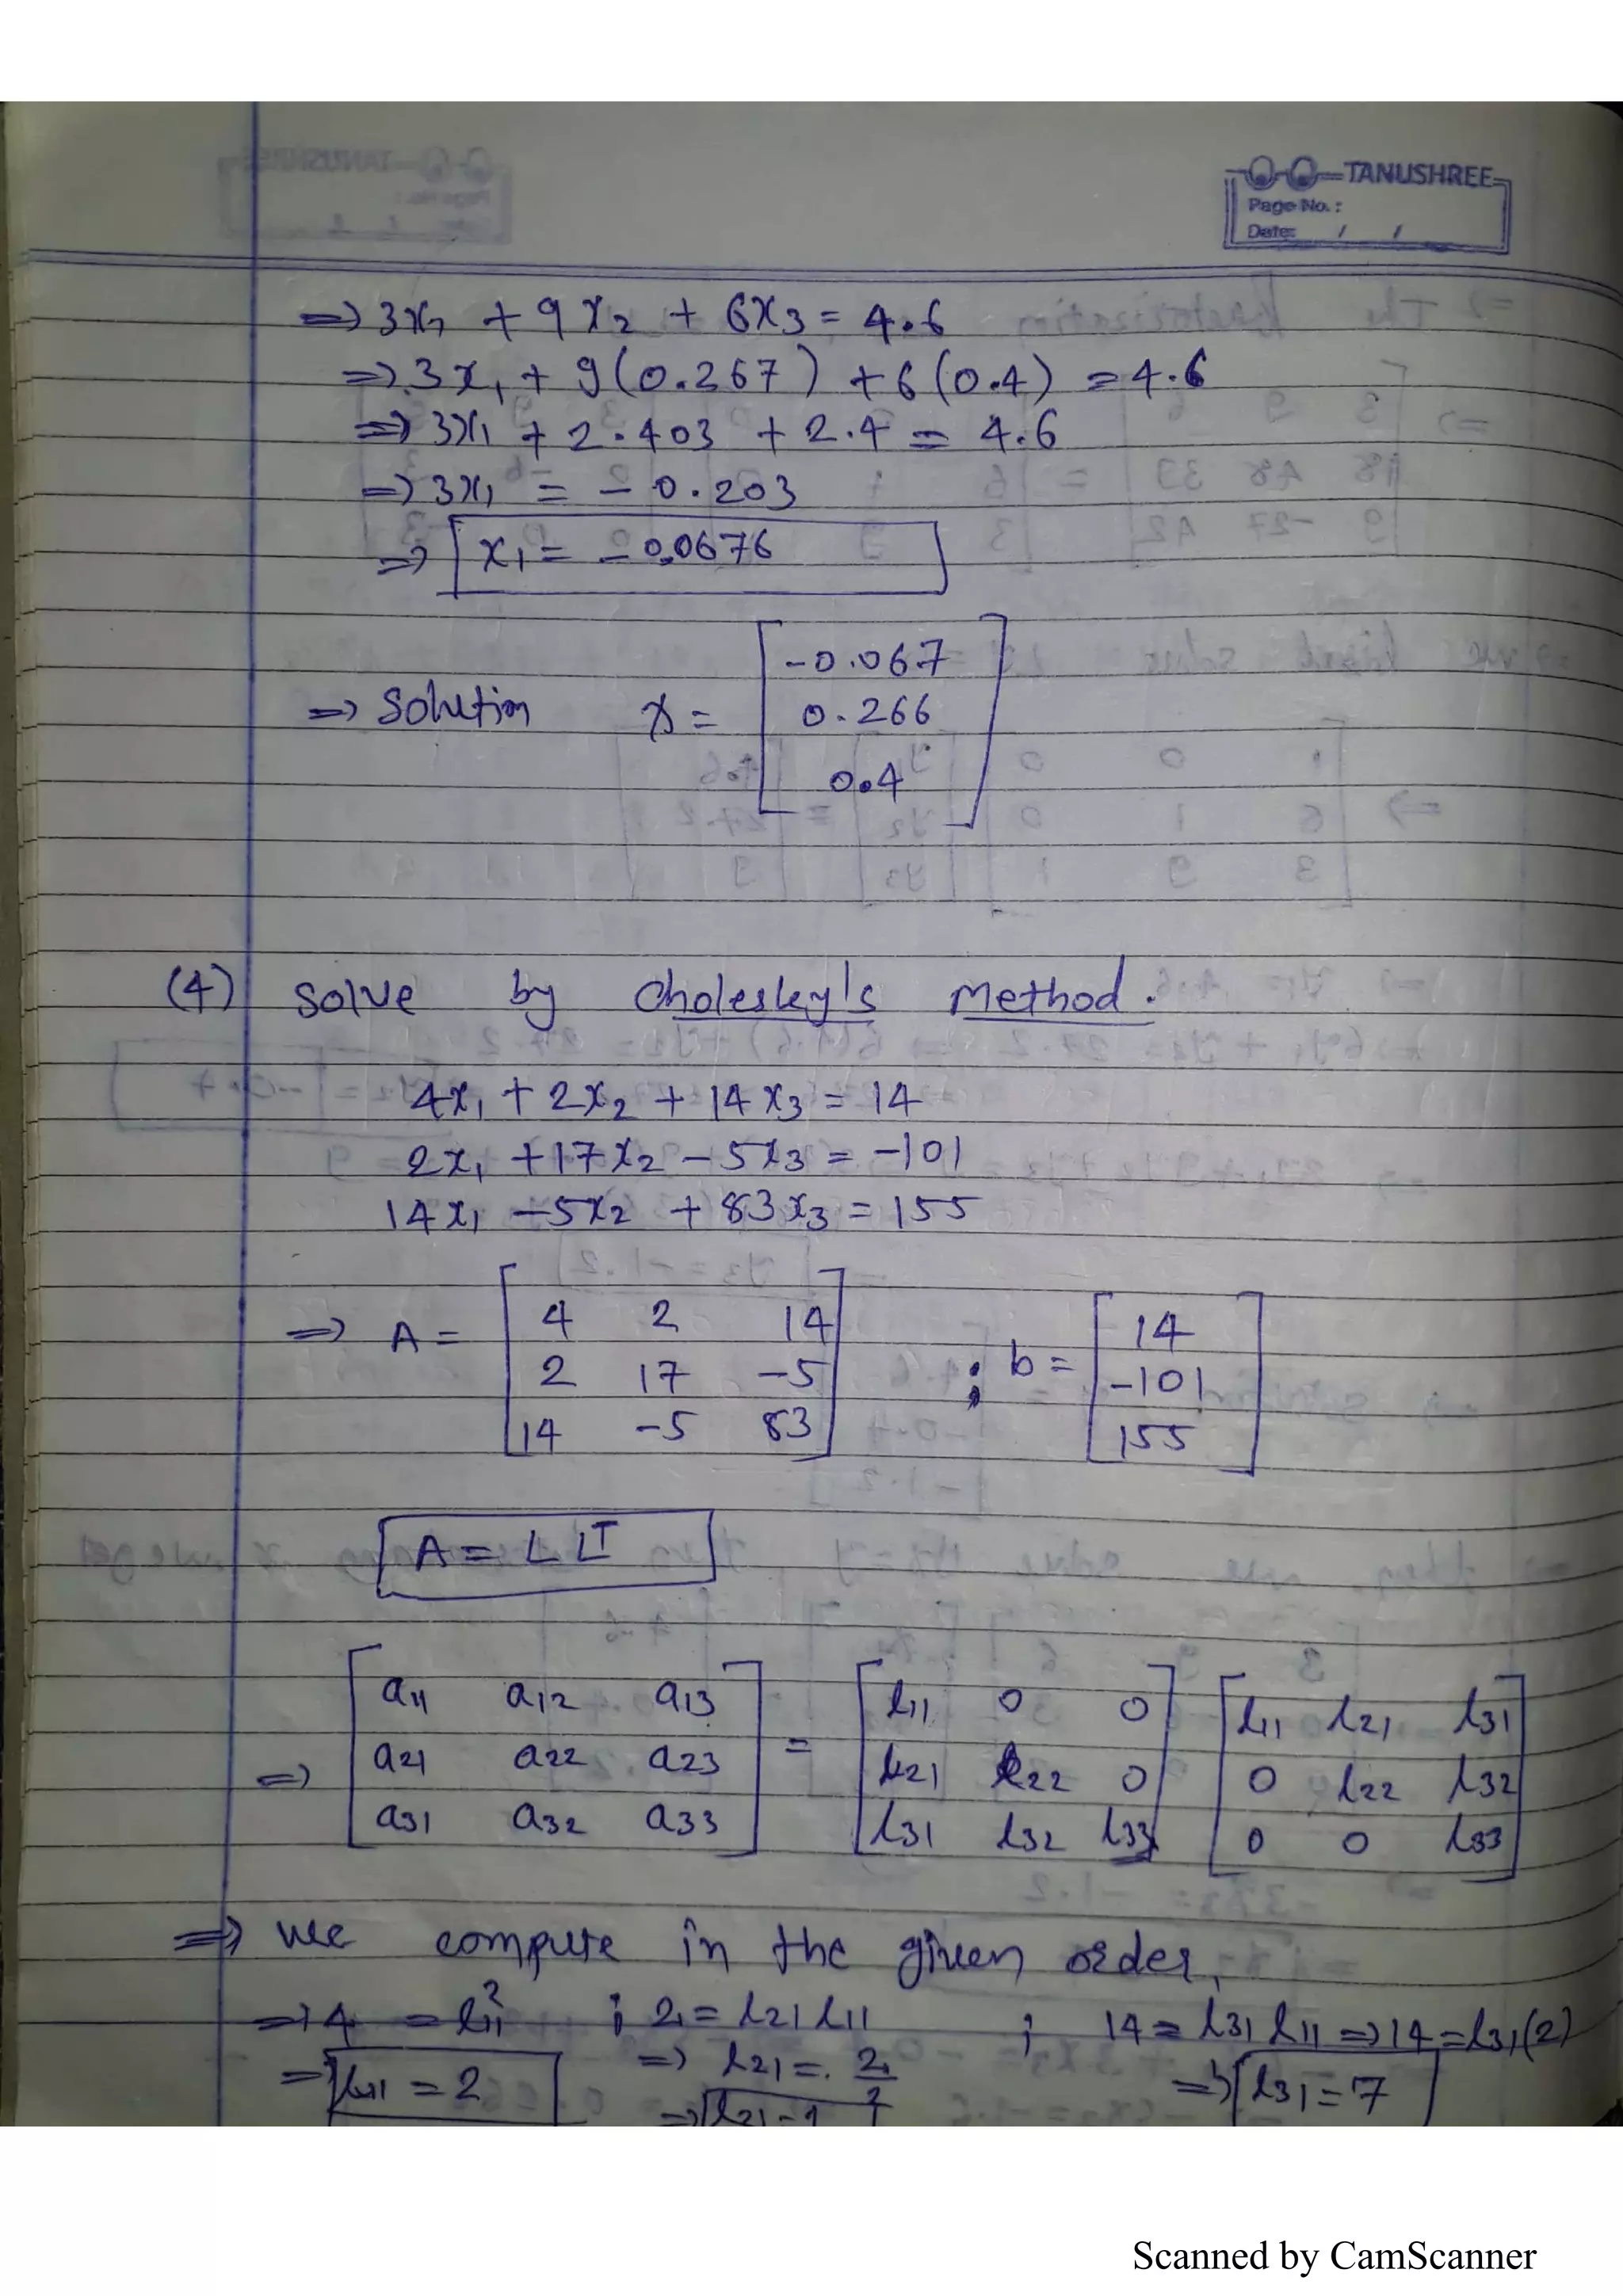 TANUSHREE
Page No. :
Date: / /
=> 3x1 + 9x2 + 6x3 = 4.6
=> 3x1 + 9(0.267) + 6(0.4) = 4.6
=> 3x1 + 2.403 + 2.4 = 4.6
=> 3x1 = -0.203
=> x1 = -0.0676
=> Solution x = [-0.067
0.266
0.4]
(4) Solve by Cholesley's Method.
4x1 + 2x2 + 14x3 = 14
2x1 + 17x2 - 5x3 = -101
14x1 - 5x2 + 83x3 = 155
=> A = [4 2 14 ; b = [14
2 17 -5 -101
14 -5 83] 155]
A = L L^T
[a11 a12 a13 [l11 0 0 [l11 l21 l31
=> a21 a22 a23 = l21 l22 0 0 l22 l32
a31 a32 a33] l31 l32 l33] 0 0 l33]
=> we compute in the given order,
=> 4 = l11^2 ; 2 = l21 l11 ; 14 = l31 l11 => 14 = l31(2)
=> l11 = 2 => l21 = 2/2 => l31 = 7
=> l21 = 1